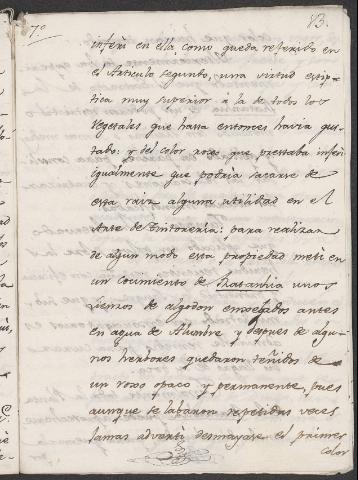 7º
13.
inferi en ella, como queda referido en
el Articulo segundo, una virtud estip-
tica muy superior à la de todos los
Vegetales que hasta entonces havia gus-
tado: y del color roxo que prestaba inferi
igualmente que podria sacarse de
esta raiz alguna utilidad en el
Arte de Tintoreria: para realizar
de algun modo esta propiedad meti en
un cocimiento de Ratanhia unos
Lienzos de algodon antes
en agua de Alumbre y despues de algu-
nos herbores quedaron teñidos de
un roxo opaco y permanente, pues
aunque se labaron repetidas veces
jamas adverti desmayase el primer
color